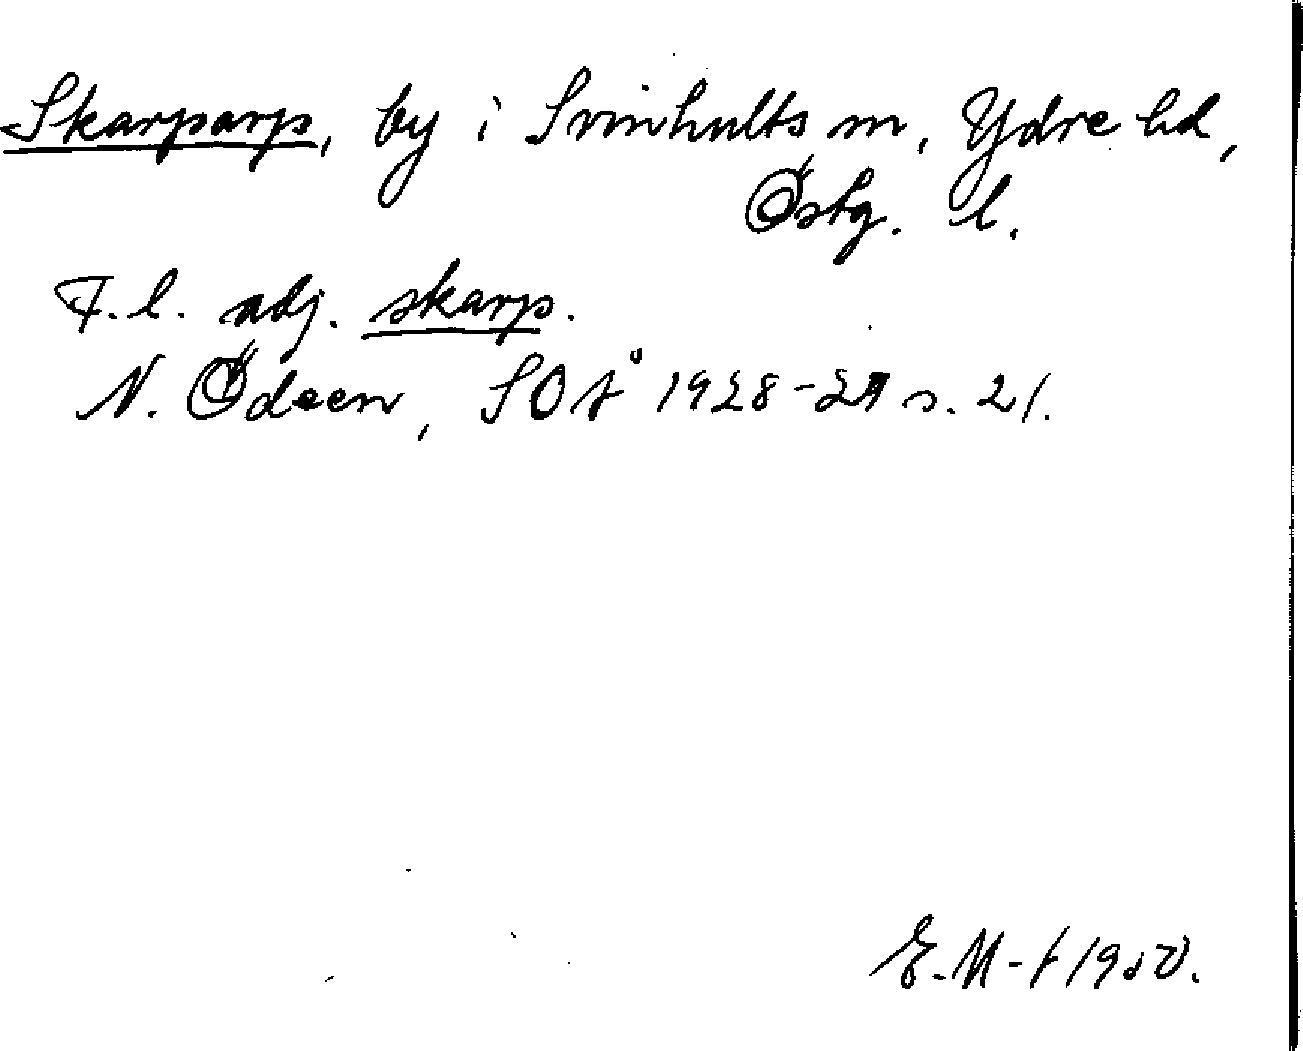 Skarparp, by i Svinhults sn, Ydre hd,
Östg. l.
F. l. adj. skarp.
N. Ödeen, SOÅ 1928-29 s. 21.
E. M-t 1950.